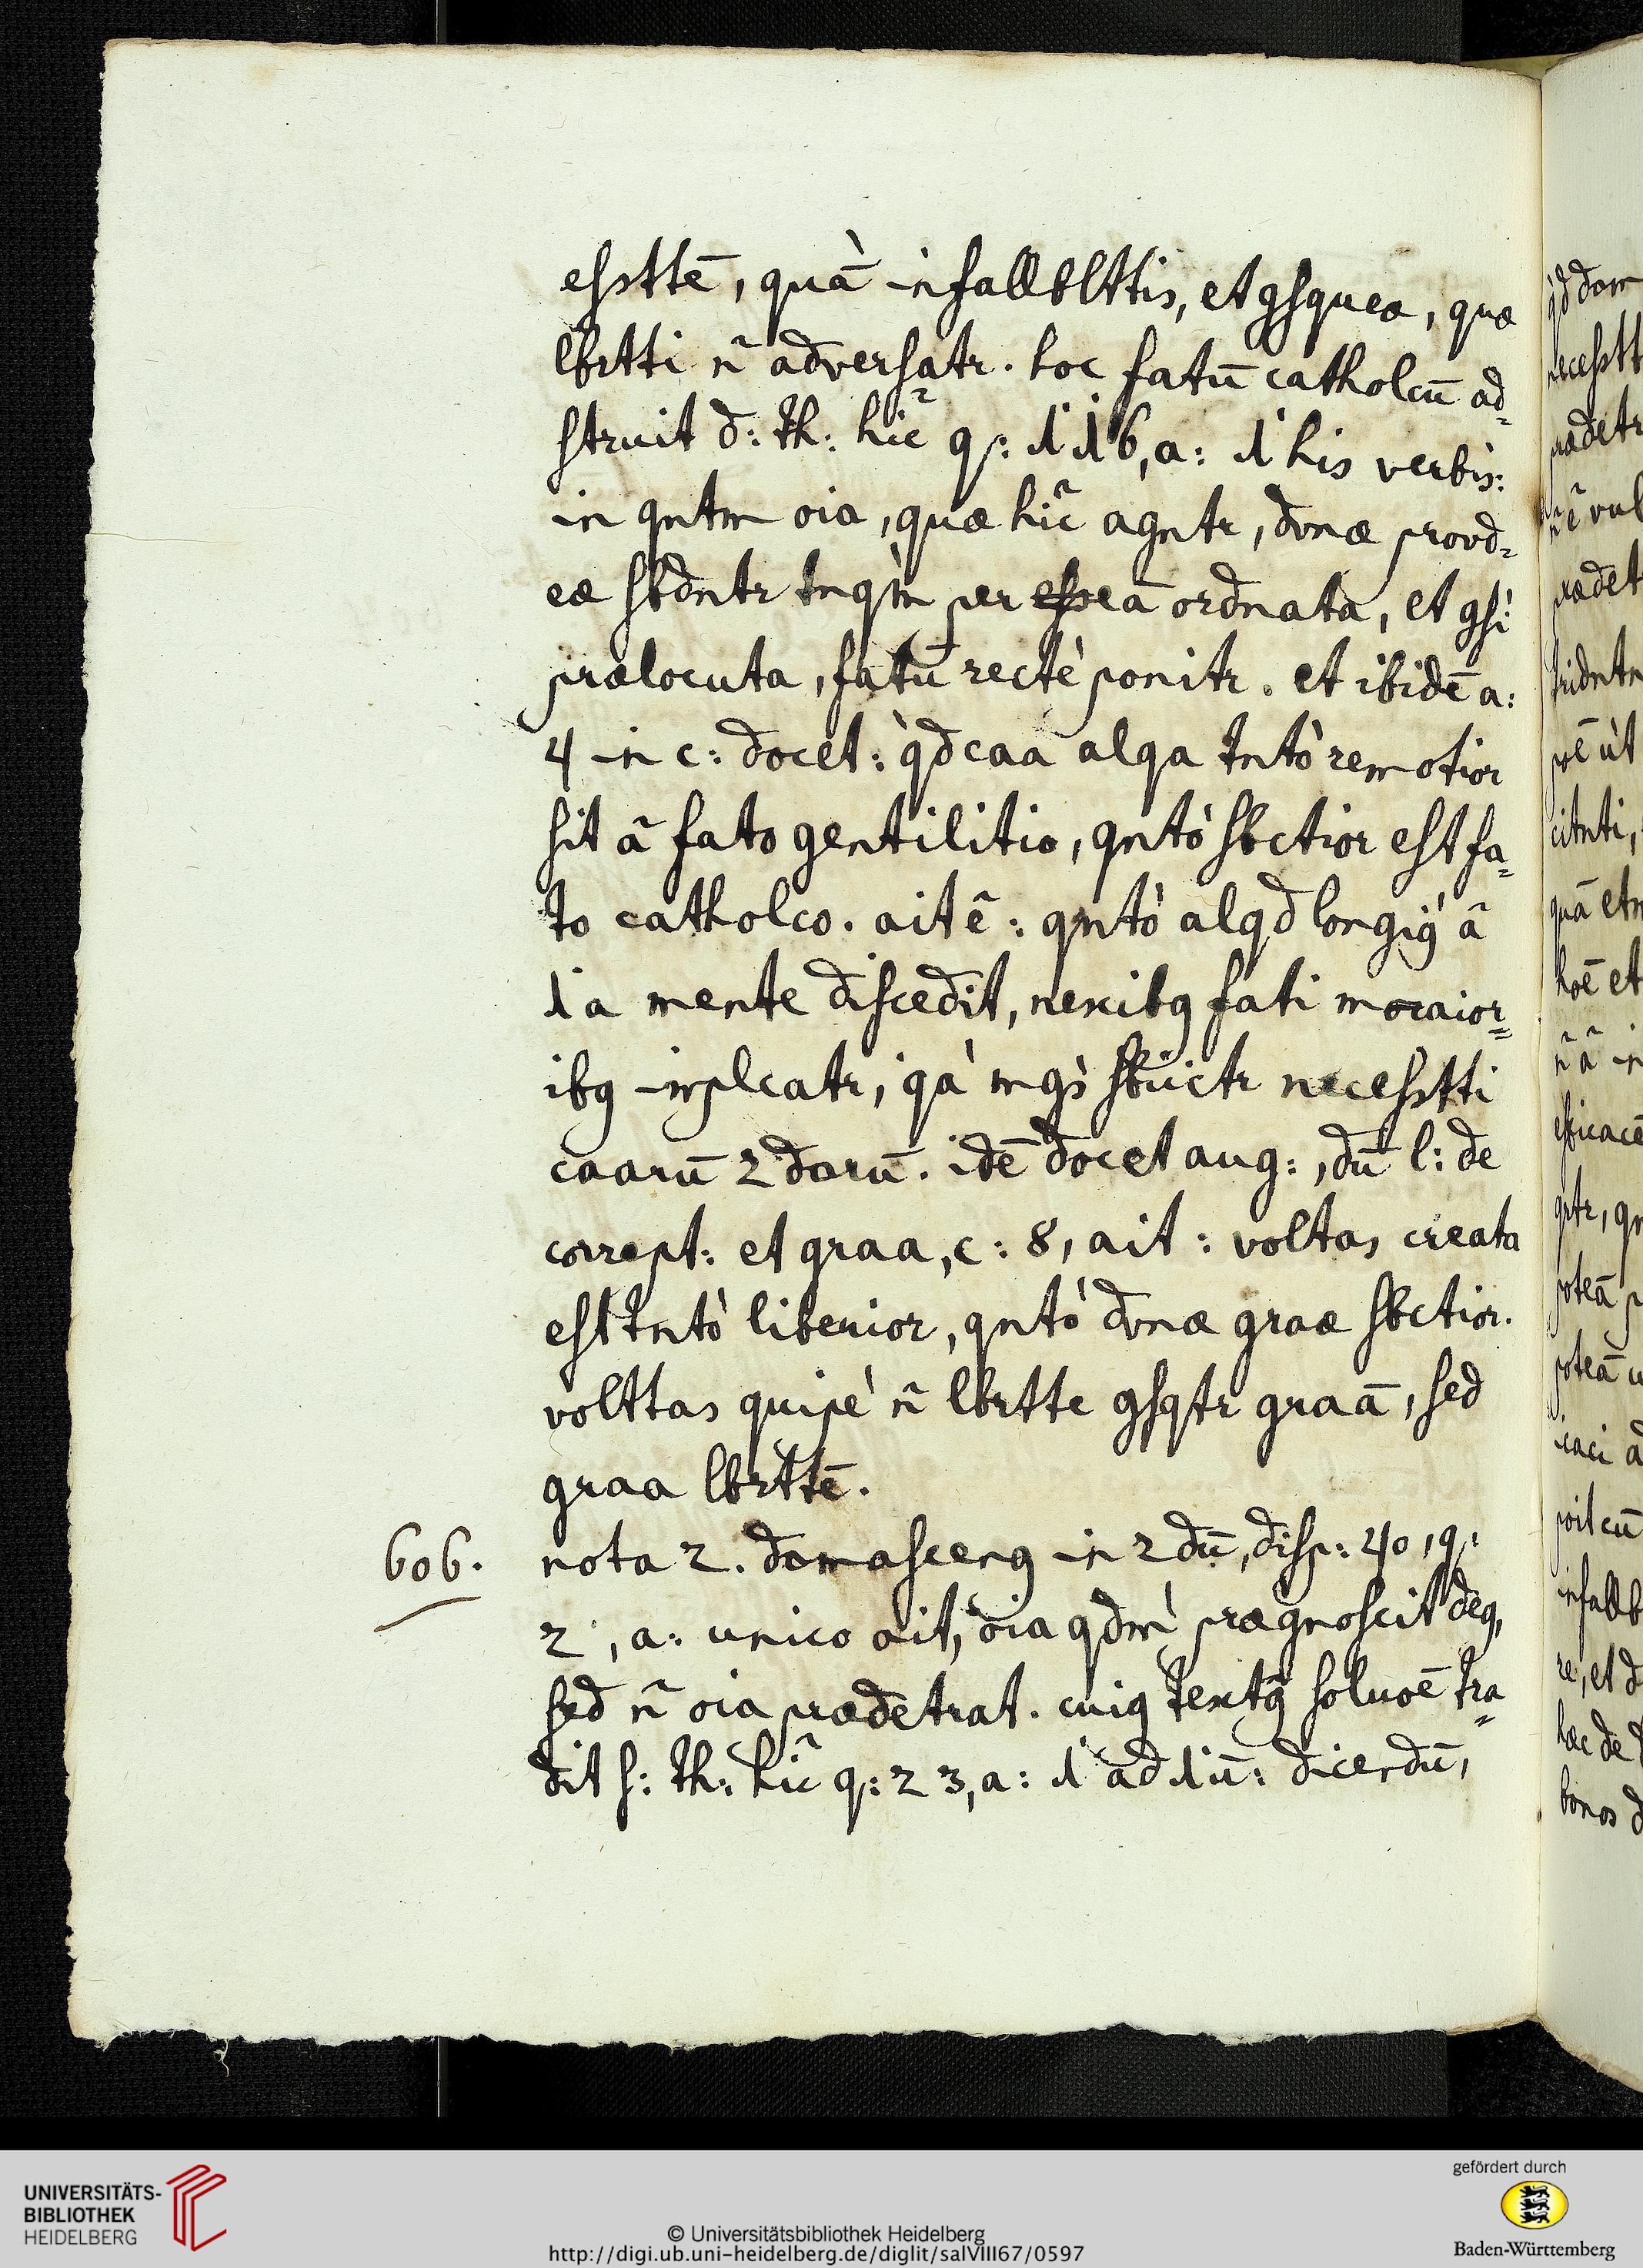 esstte͞, quà͞ infallblttis, et gsquea, quæ
lbrtti n͂ adversatr. hoc fatu͞ catholcu͞ ad=
struit d: th: hic͂ q: 116, a: 1 his verbis:
in qntm oia, quæ hic͂ agntr, dvnæ provd=
eæ sbdntr tnqm̀ per ea͞ ordnata, et gsì
prælocuta, fatu͞ rectè ponitr. et ibide͞ a:
4 in c: docet: q̀d caa alqa tntò remotior
sit a͂ fato gentilitio, qntò sbctior est fa=
to catholco. ait e͂: qntò alqd longiꝰ a͂
1a mente discedit, nexibꝰ fati maior=
ibꝰ implcatr, qà mgs̀ sbiictr necesstti
caaru͞ 2daru͞. ide͞ docet aug:, du͞ l: de
corrept: et graa, c: 8, ait: voltas creata
est tntò liberior, qntò dvnæ graæ sbctior.
volttas quipè n͂ lbrtte gsqtr graa͞, sed
graa lbrtte͞.
606. nota 2. damascenꝰ in 2du͞, disp: 40, q:
2, a: unico ait, oia qdm̀ prægnoscit deꝰ,
sed n͂ oia prædetrat. cuiꝰ textꝰ soluoe͞ tra=
dit s: th: hic͂ q: 23, a: 1 ad 1u͞: dicendu͞,
UNIVERSITÄTS-
BIBLIOTHEK
HEIDELBERG
© Universitätsbibliothek Heidelberg
http://digi.ub.uni-heidelberg.de/diglit/salVIII67/0597
gefördert durch
Baden-Württemberg